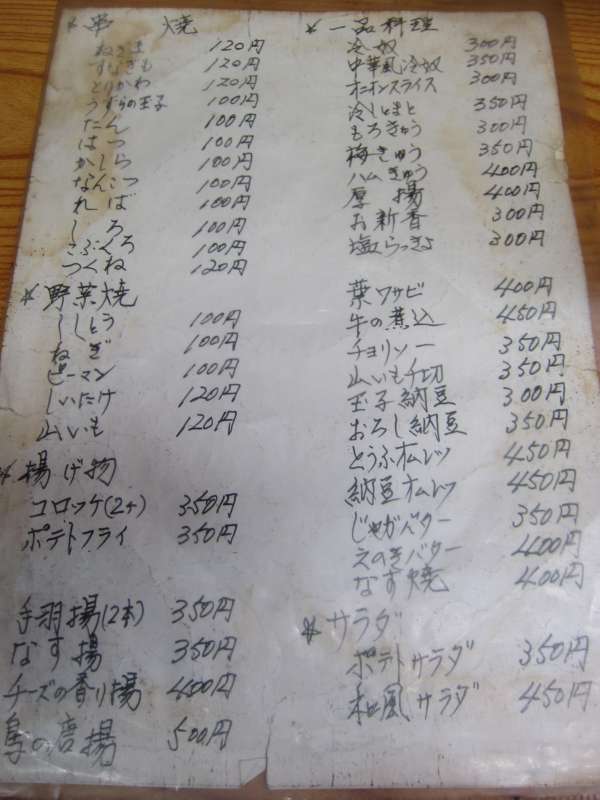 * 串 焼
ねぎま 120円
すなぎも 120円
とりかわ 120円
うずらの玉子 100円
たん 100円
はつ 100円
かしら 100円
なんこつ 100円
ればー 100円
しろ 100円
こぶくろ 100円
つくね 120円
* 野菜焼
ししとう 100円
ねぎ 100円
ピーマン 100円
しいたけ 120円
山いも 120円
* 揚げ物
コロッケ(2ヶ) 350円
ポテトフライ 350円
手羽揚(2本) 350円
なす揚 350円
チーズの香り揚 400円
鳥の唐揚 500円
* 一品料理
冷奴 300円
中華風冷奴 350円
オニオンスライス 300円
冷しとまと 350円
もろきゅう 300円
梅きゅう 350円
ハムきゅう 400円
厚揚 400円
お新香 300円
塩らっきょ 300円
葉ワサビ 400円
牛の煮込 450円
チョリソー 350円
山いも千切 350円
玉子納豆 300円
おろし納豆 350円
とうふオムレツ 450円
納豆オムレツ 450円
じゃがバター 350円
えのきバター 400円
なす焼 400円
* サラダ
ポテトサラダ 350円
和風サラダ 450円